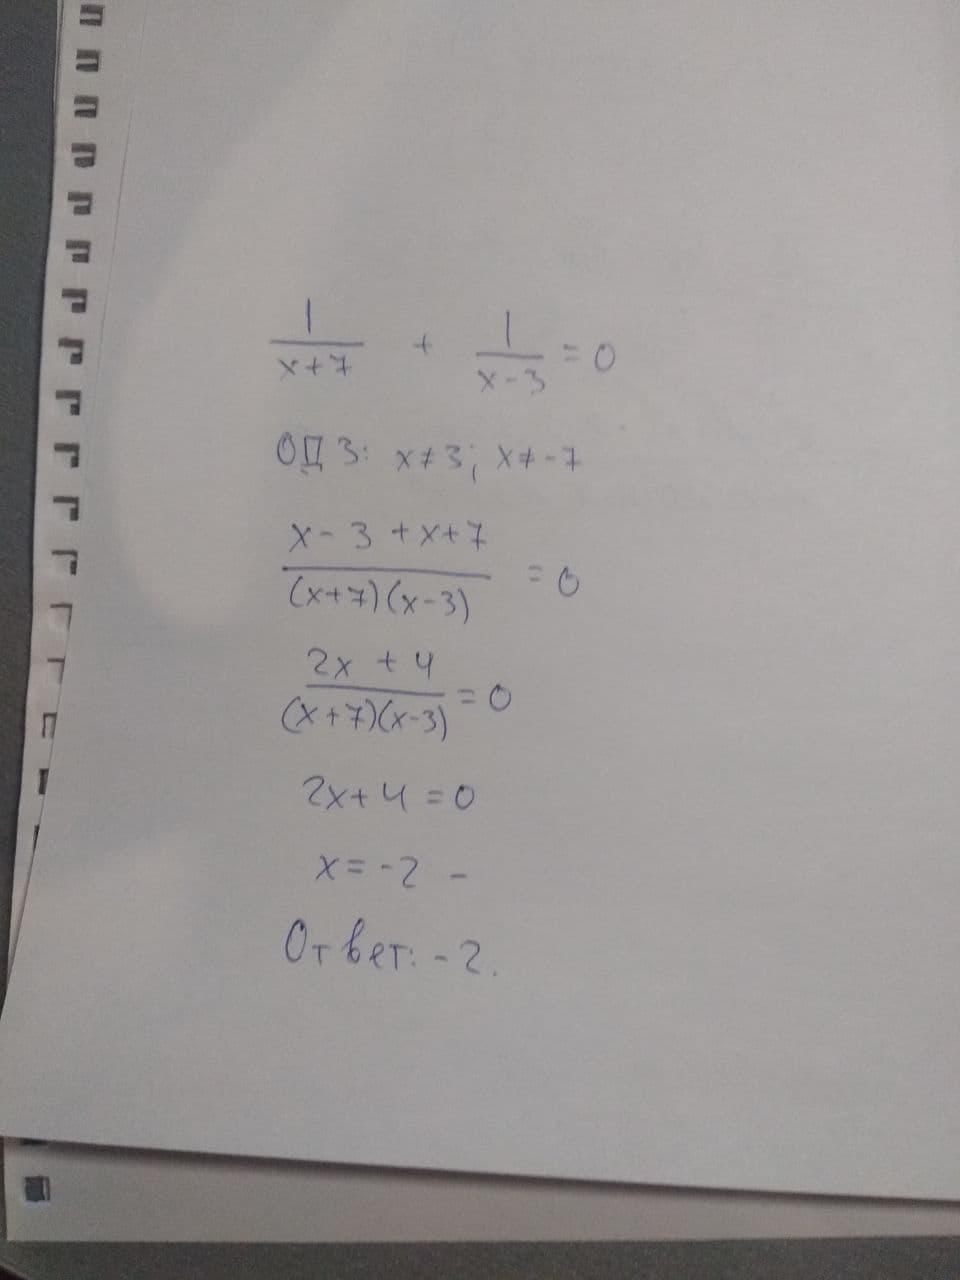 1/(x+7) + 1/(x-3) = 0
ОДЗ: x≠3; x≠-7
(x-3+x+7)/((x+7)(x-3)) = 0
(2x+4)/((x+7)(x-3)) = 0
2x+4=0
x=-2 -
Ответ: -2.